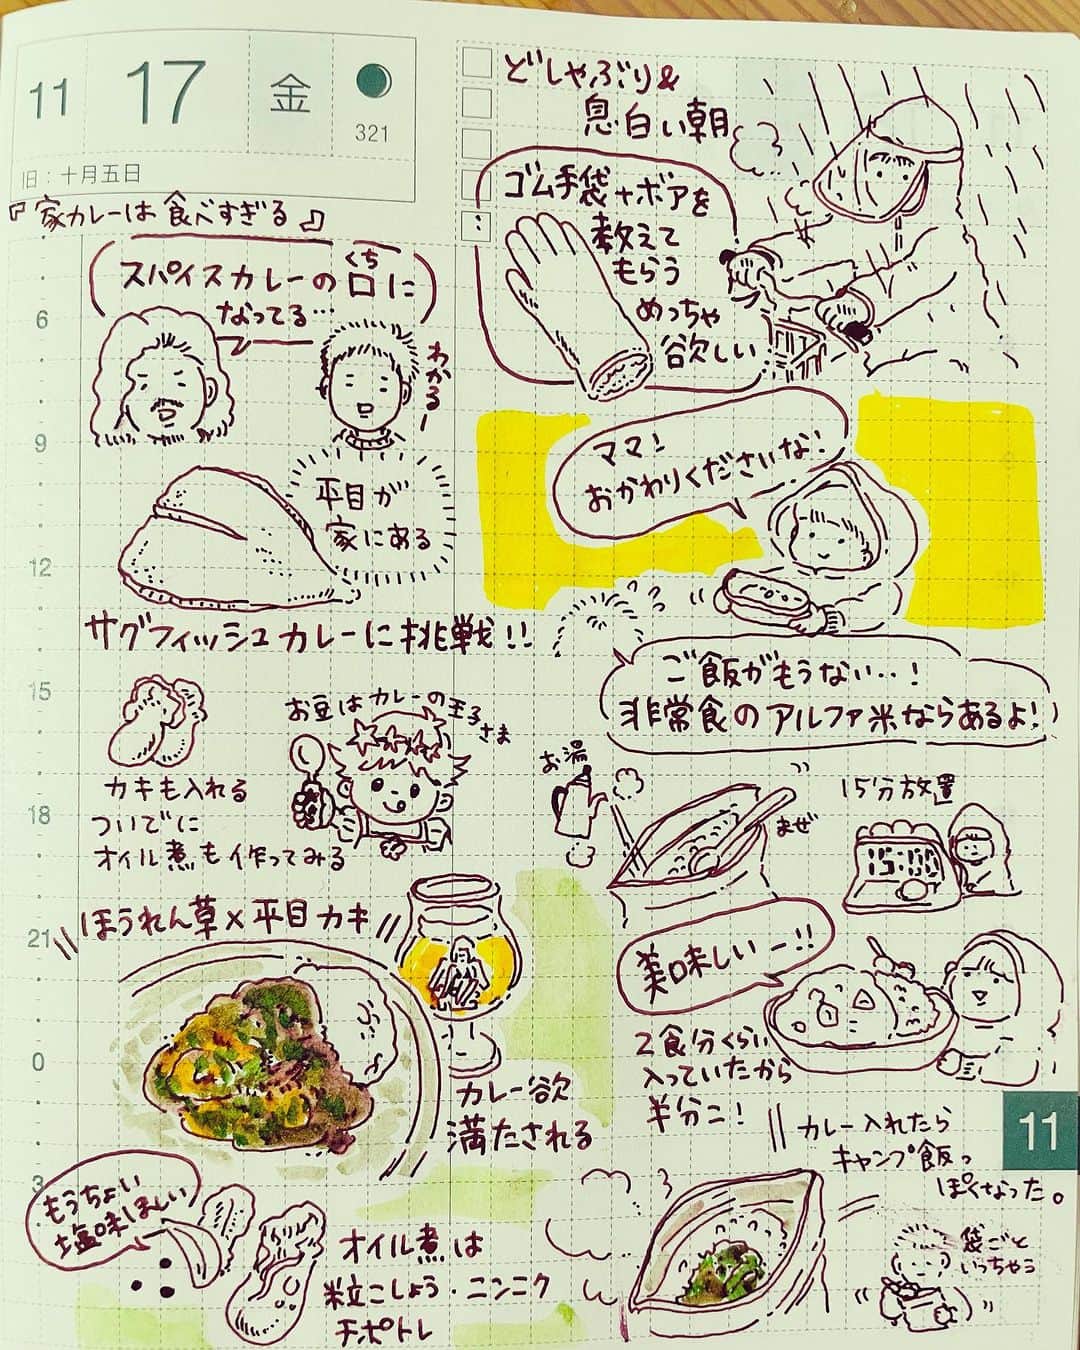 11 17 金
321
旧：十月五日
『家カレーは食べすぎる』
スパイスカレーの口に
くち
なってる…
わかるー
平目が
家にある
サグフィッシュカレーに挑戦!!
カキも入れる
ついでに
オイル煮も作ってみる
お豆はカレーの王子
さま
ほうれん草×平目カキ
カレー欲
満たされる
もうちょい
塩味ほしい
オイル煮は
粒こしょう・ニンニク
チポトレ
6
9
12
15
18
21
0
3
どしゃぶり&
息白い朝
ゴム手袋+ボアを
教えて
もらう
めっちゃ
欲しい
ママ!
おかわりくださいな!
ご飯がもうない…!
非常食のアルファ米ならあるよ!
お湯
まぜ
15分放置
15:00
美味しいー!!
2食分くらい
入っていたから
半分こ!
カレー入れたら
キャンプ飯っ
ぽくなった。
袋ごと
いっちゃう
11